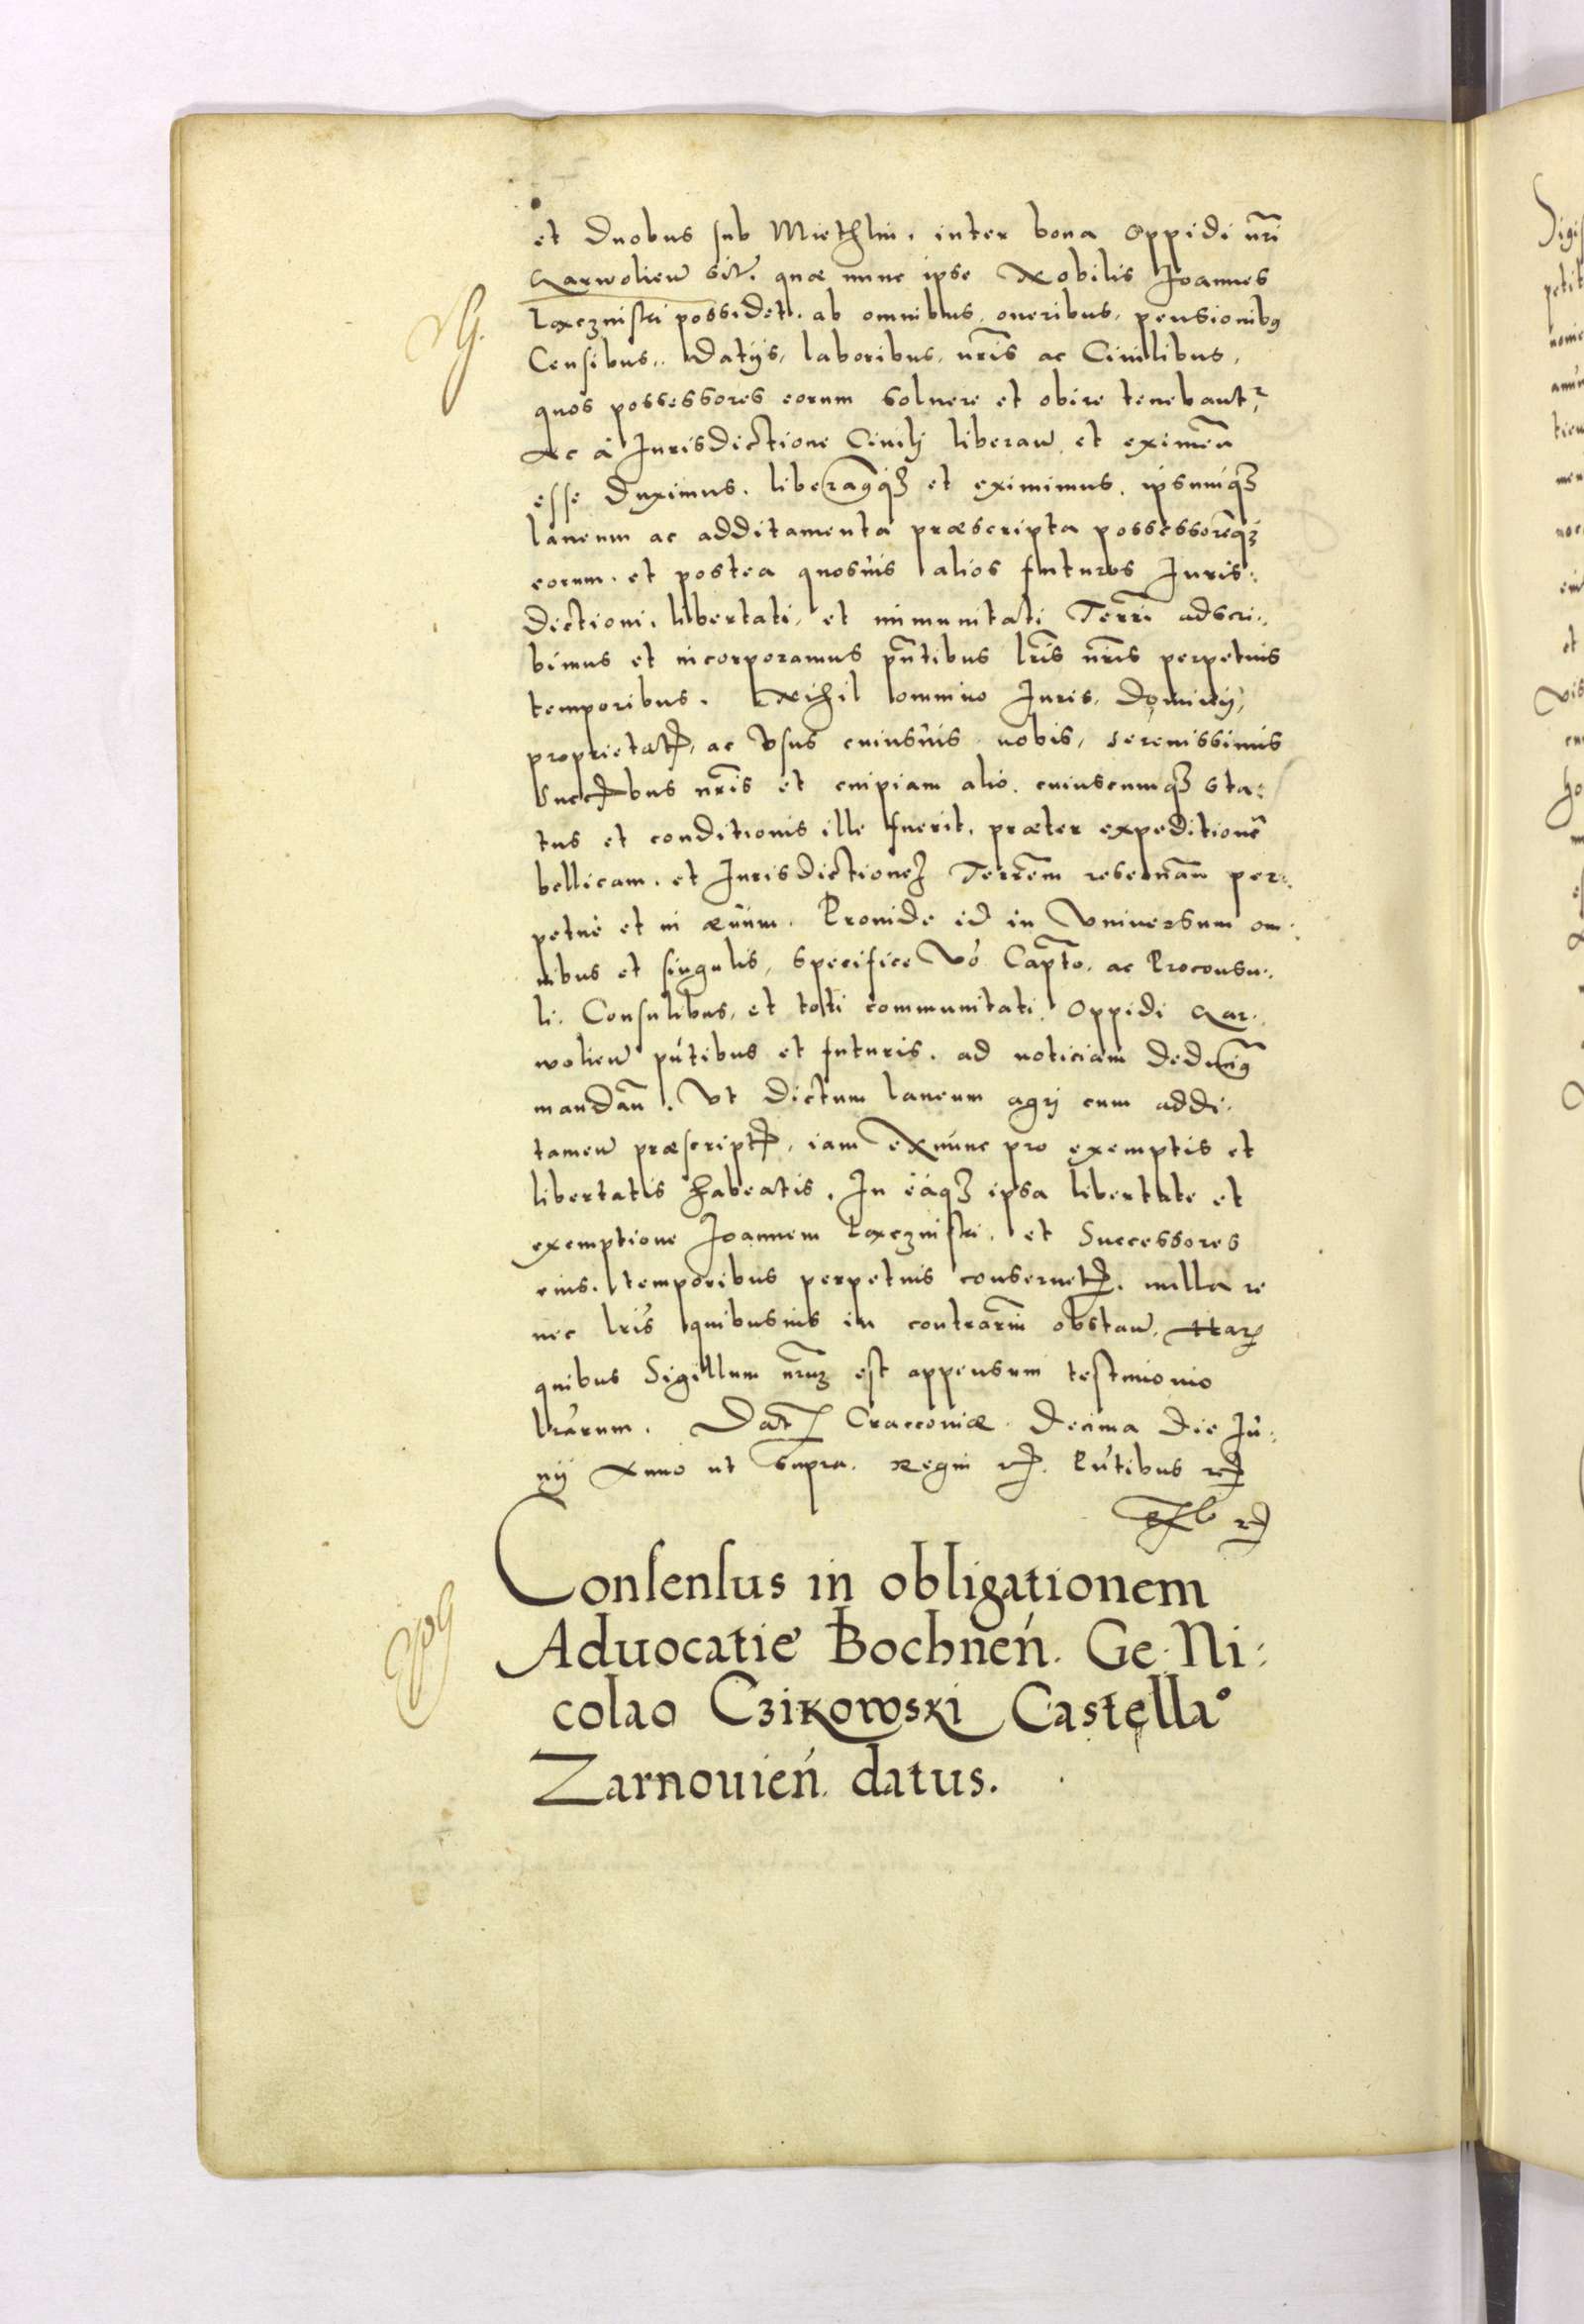 et duobus sub Miethlin. inter bona Oppidi nri
Garwolien sit. quæ nunc ipse Nobilis Joannes
Laczniski possidet. ab omnibus, oneribus, pensionibus
Censibus, datijs, laboribus, nris ac Ciuilibus,
quos possessores eorum soluere et obire tenebantr
Ac à Jurisdictione Ciuilj liberan et eximen
esse duximus. liberamusq3 et eximimus. ipsumq3
laneum ac additamenta præscripta possessoresq3
eorum. et postea quosuis alios futuros Juris:
dictioni, libertati, et immunitati Terri adscri:
bimus et incorporamus pntibus lris nris perpetuis
temporibus. Nihil omnino Juris, dominij,
proprietat, ac Vsus cuiusuis nobis, serenissimis
Succbus nris et cuipiam alio. cuiuscumq3 sta:
tus et conditionis ille fuerit, præter expeditionē
bellicam. et Jurisdictione3 Terrem reseruan per:
petuè et in æuum. Prouide id in Vniuersum om:
nibus et singulis, specifice Vo Capto. ac Proconsu:
li. Consulibus, et toti communitati Oppidi Gar:
wolien pntibus et futuris. ad noticiam deducimus
mandan. Vt dictum laneum agrj cum addi:
tamen præscript, iam exnunc pro exemptis et
libertatis habeatis. In eáq3 ipsa libertate et
exemptione Joannem Laczniski. et Successores
eius. temporibus perpetuis conseruet. nulla re
nec lris quibusuis in contrarm obstan. Har
quibus Sigillum nrum est appensum testimonio
lrarum. Dat Craccouiæ. Decima die Ju:
nij Anno ut supra. Regni r. Pntibus r